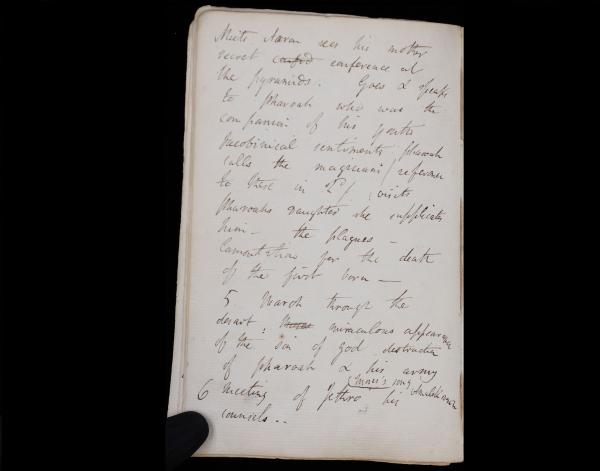 Meets Aaron sees his mother
secret confed conference at
the pyramids. Goes & speaks
to pharoah who was the
companion of his youth
Jacobinical sentiments pharoah
calls the magicians / reference
to these in 2d / visits
pharoahs daughter she supplicates
him — the plagues —
lamentations for the death
of the first born —
5. March through the
desart: miraculous appearance
of the Son of god destruction
of pharoah & his army
(Moses's song
6 Meeting of Jethro his
counsels..